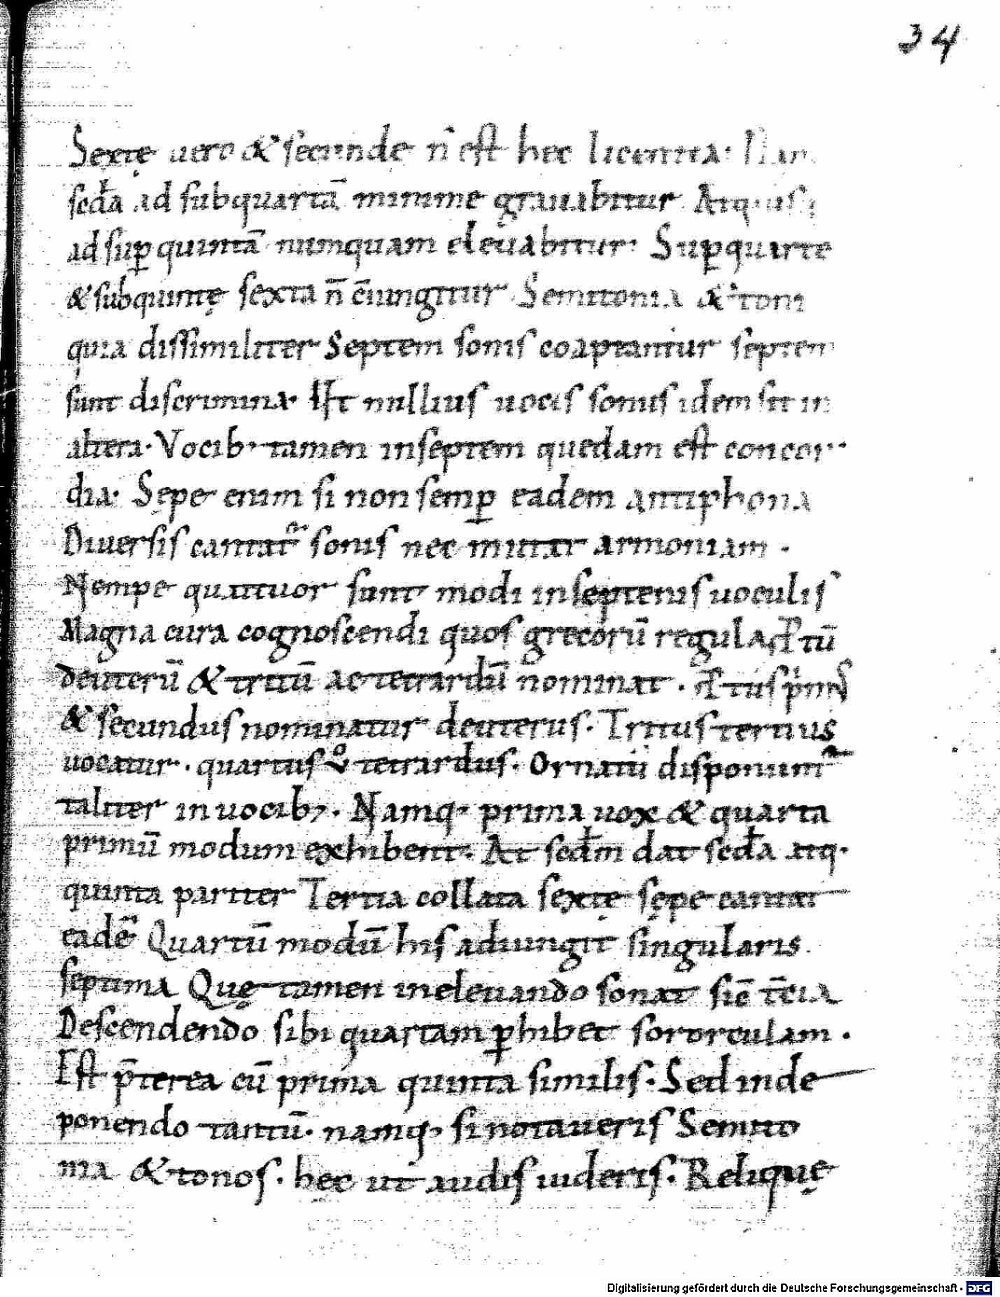 34
Sextę uero & secunde n̄ est hec licentia· Nam
scđa ad subquartā minime grauabitur Atq·
ad sup quintā numquam eleuabitur· Supquarte
& subquintę sexta n̄ c̄iungitur Semitonia & toni
quia dissimiliter Septem sonis coaptantur septem
sunt discrimina· Ut nullius uocis sonus idem sit in
altera· Vocib· tamen inseptem quedam est concor
dia· Sepe enim si non semp eadem antiphona
Diuersis cantat᷑ sonis nec mutat armoniam ·
Nempe quattuor sunt modi inseptenis uoculis
Magna cura cognoscendi quos grecorū regula ꝓtū
deuterū & tritū ac tetrardū nominat · ꝓtus
& secundus nominatur deuterus· Tritus tertius
uocatur · quartus uº tetrardus· Ornatū disponunt᷑
taliter in uocib; · Namq· prima uox & quarta
primū modum exhibent· At scđm dat scđa atq·
quinta pariter Tertia collata sextę sępe cantat
eadē Quartū modū his adiungit singularis
septima Quę tamen ineleuando sonat sic̄ t̄cia
Descendendo sibi quartam ꝑhibet sororculam ·
Est p̄terea cū prima quinta similis· Sed inde
ponendo tantū· namq· si notaueris Semito
nia & tonos· hec ut audis uideris· Reliquę
Digitalisierung gefördert durch die Deutsche Forschungsgemeinschaft - DFG